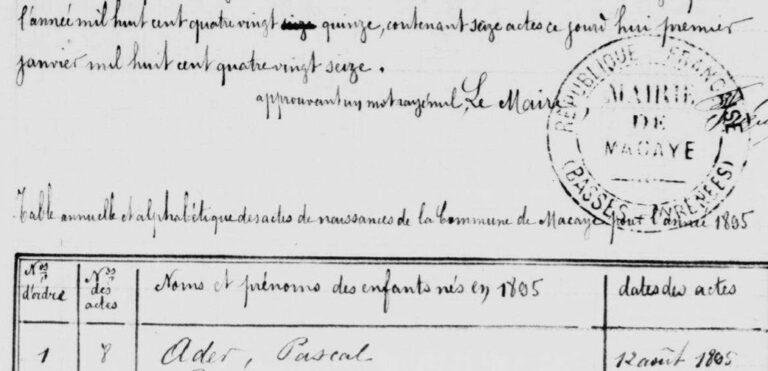 l'année mil huit cent quatre vingt seize quinze, contenant seize actes ce jourd'hui premier
janvier mil huit cent quatre vingt seize.
approuvant un mot rayé nul, Le Maire,
RÉPUBLIQUE FRANÇAISE
MAIRIE
DE
MACAYE
(BASSES-PYRÉNÉES)
Table annuelle et alphabétique des actes de naissances de la Commune de Macaye pour l'année 1895
Nos d'ordre
Nos des actes
Noms et prénoms des enfants nés en 1895
dates des actes
1 8 Ader, Pascal 12 août 1895